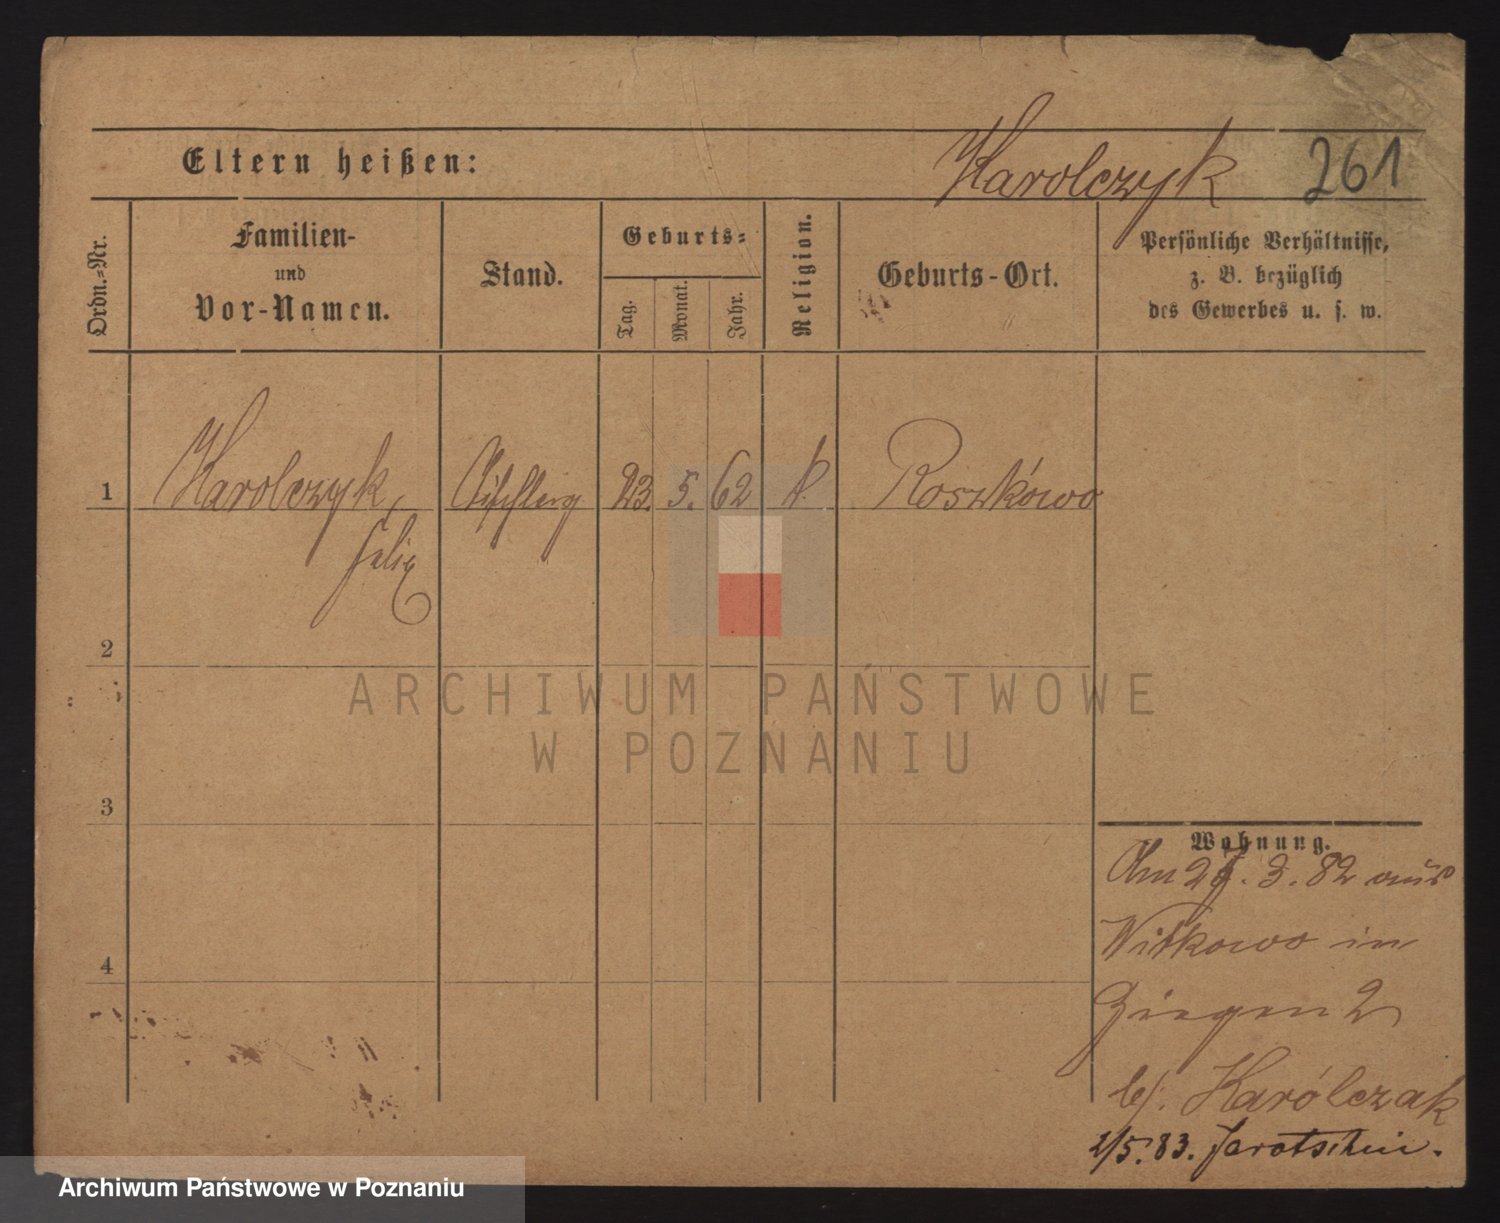 Eltern heißen:
Karolczyk
261
Ordn.-Nr.
Familien-
und
Vor-Namen.
Stand.
Geburts-
Tag.
Monat.
Jahr.
Religion.
Geburts-Ort.
Persönliche Verhältnisse,
z. B. bezüglich
des Gewerbes u. s. w.
1 Karolczyk, 23. 5. 62 k. Roszkówo
Felix
2
3
4
Wohnung.
Am 27. 3. 82 aus
Witkowo in
Ziegen 2
b/. Karólczak
2/5. 83. Jarotschin.
ARCHIWUM PAŃSTWOWE
W POZNANIU
Archiwum Państwowe w Poznaniu